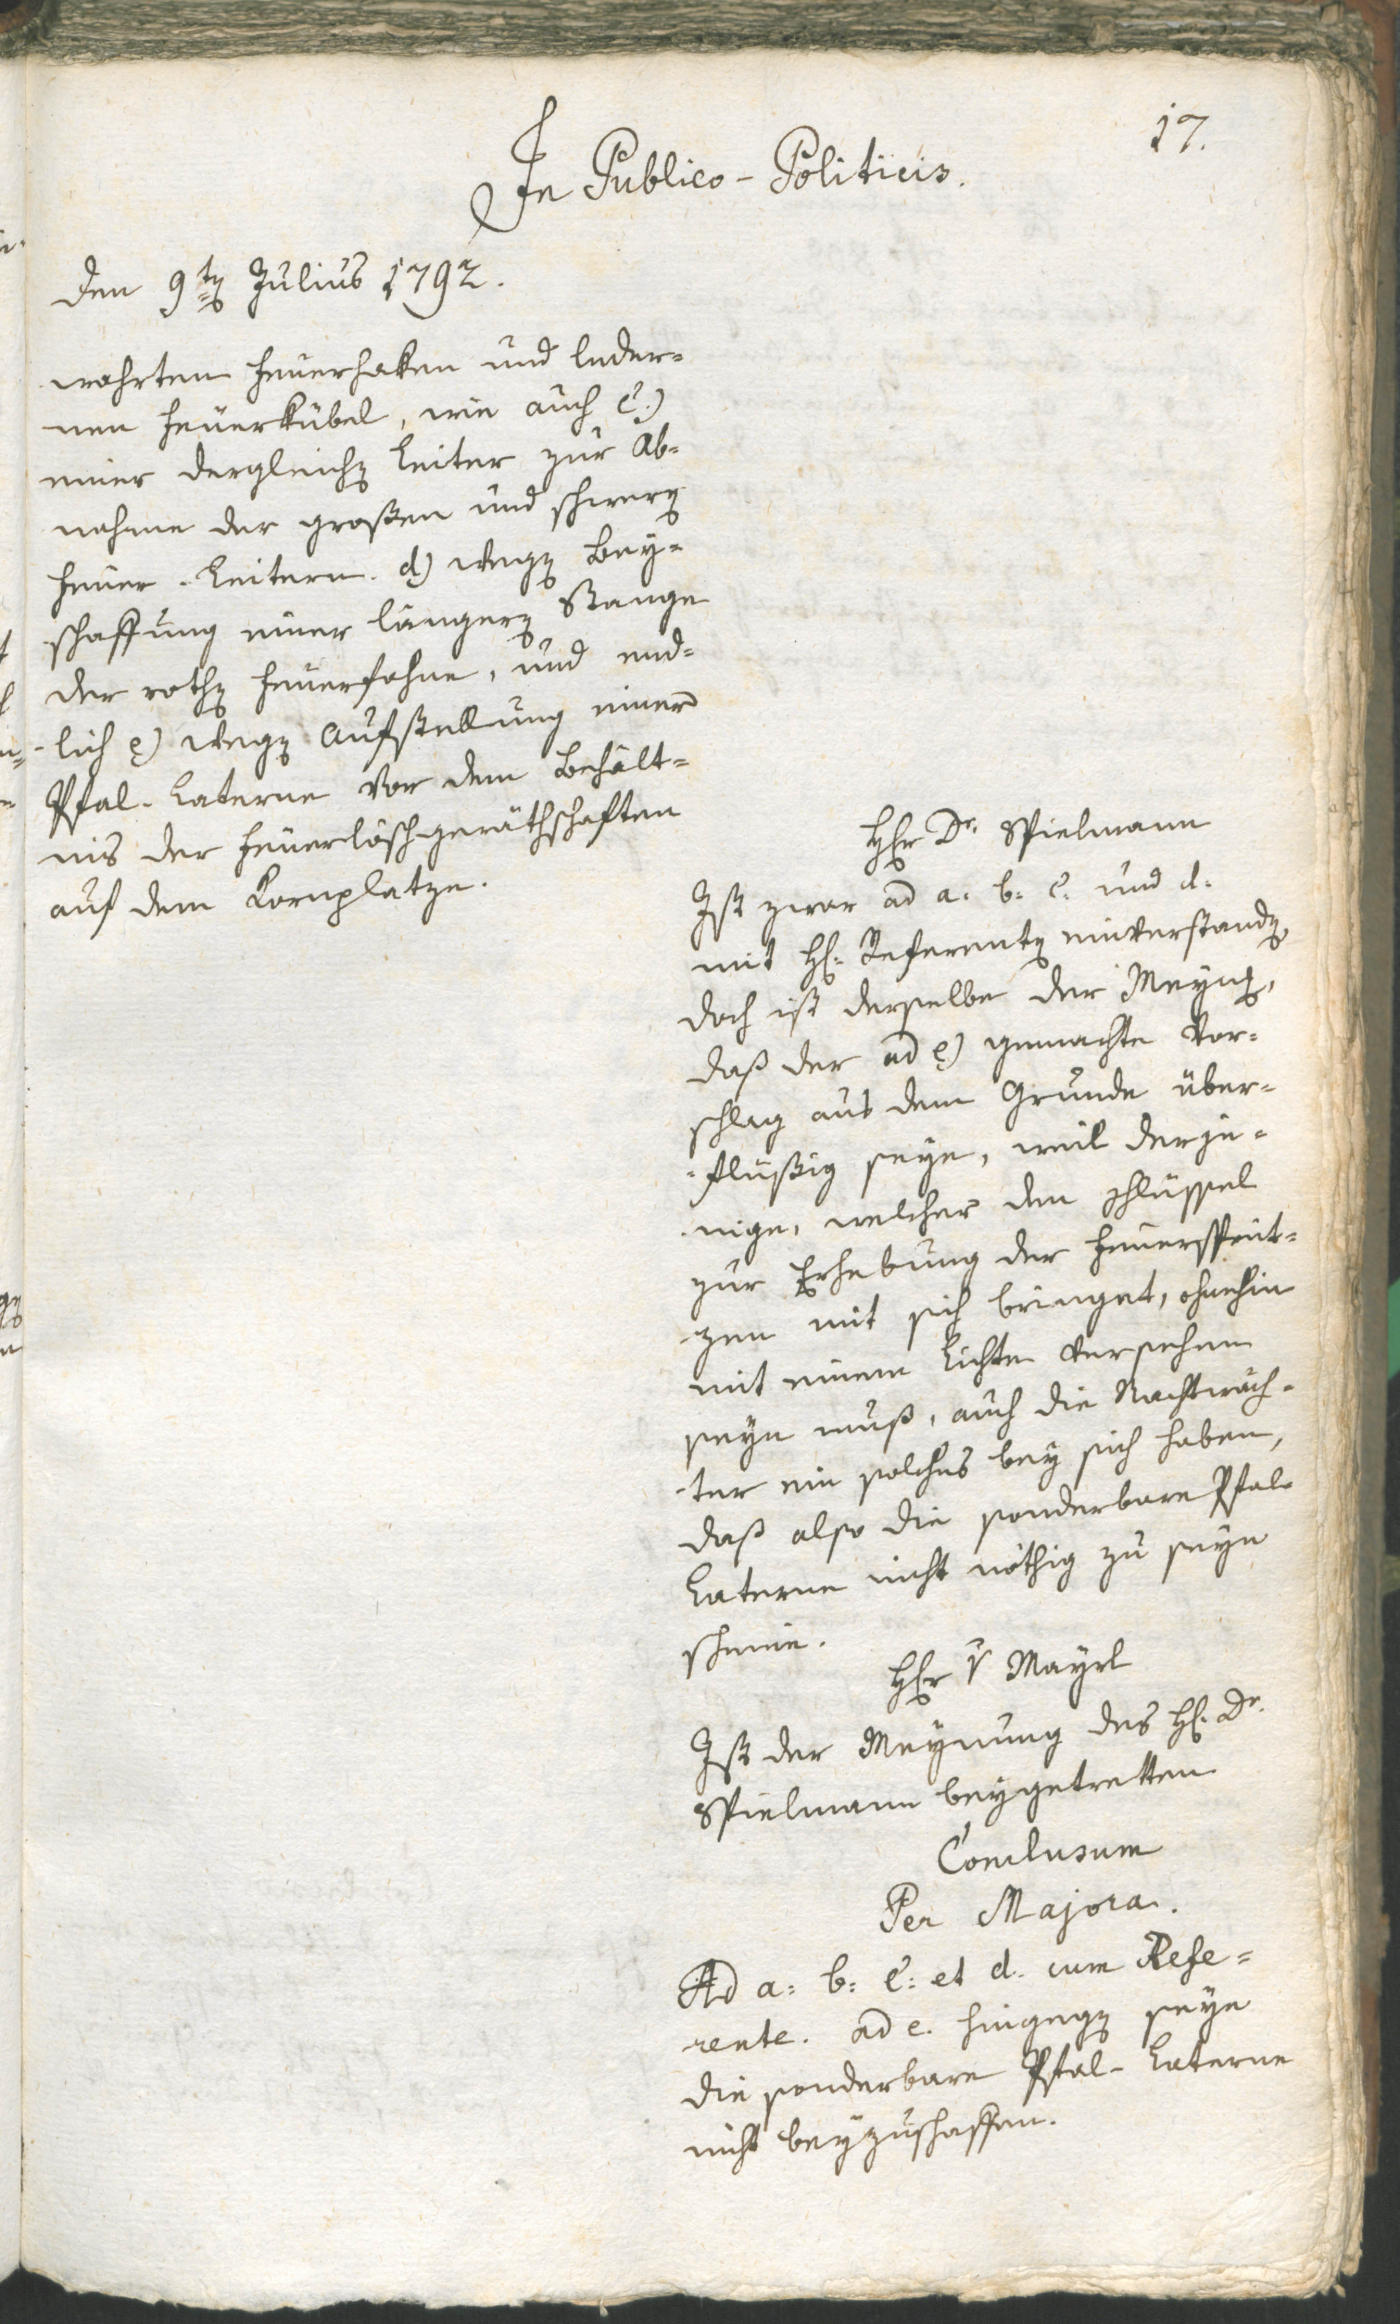 17.
In Publico-Politicis.
Den 9ten Julius 1792.
wahrten Feuerhaken und leder=
nen Feuerkübel, wie auch c.)
einer dergleichen Leiter zur Ab=
nahme der großen und schweren
Feuer-Leitern. d) wegen Bey=
schaffung einer längern Stange
der rothen Feuerfahne, und end=
lich e) wegen Aufstellung einer
Pfal-Laterne vor dem Behält=
nis der Feuerlöschgeräthschaften
auf dem Kornplatze.
Herr Dr. Spielmann
Ist zwar ad a. b. c. und d.
mit H. Referenten einverstanden,
doch ist derselbe der Meynung,
daß der ad e) gemachte Vor=
schlag aus dem Grunde über=
flüßig seye, weil derje=
nige, welcher den Schlüssel
zur Erhebung der Feuerspritz=
zen mit sich bringet, ohnehin
mit einem Lichte versehen
seyn muß, auch die Nachtwäch=
ter ein solches bey sich haben,
daß also die sonderbare Pfal-
Laterne nicht nöthig zu seyn
scheine.
Herr v Mayrl
Ist der Meynung des H. Dr.
Spielmann beygetretten
Conclusum
Per Majora.
Ad a: b: c: et d. cum Refe=
rente. ad e. hingegen seye
die sonderbare Pfal-Laterne
nicht beyzuschaffen.